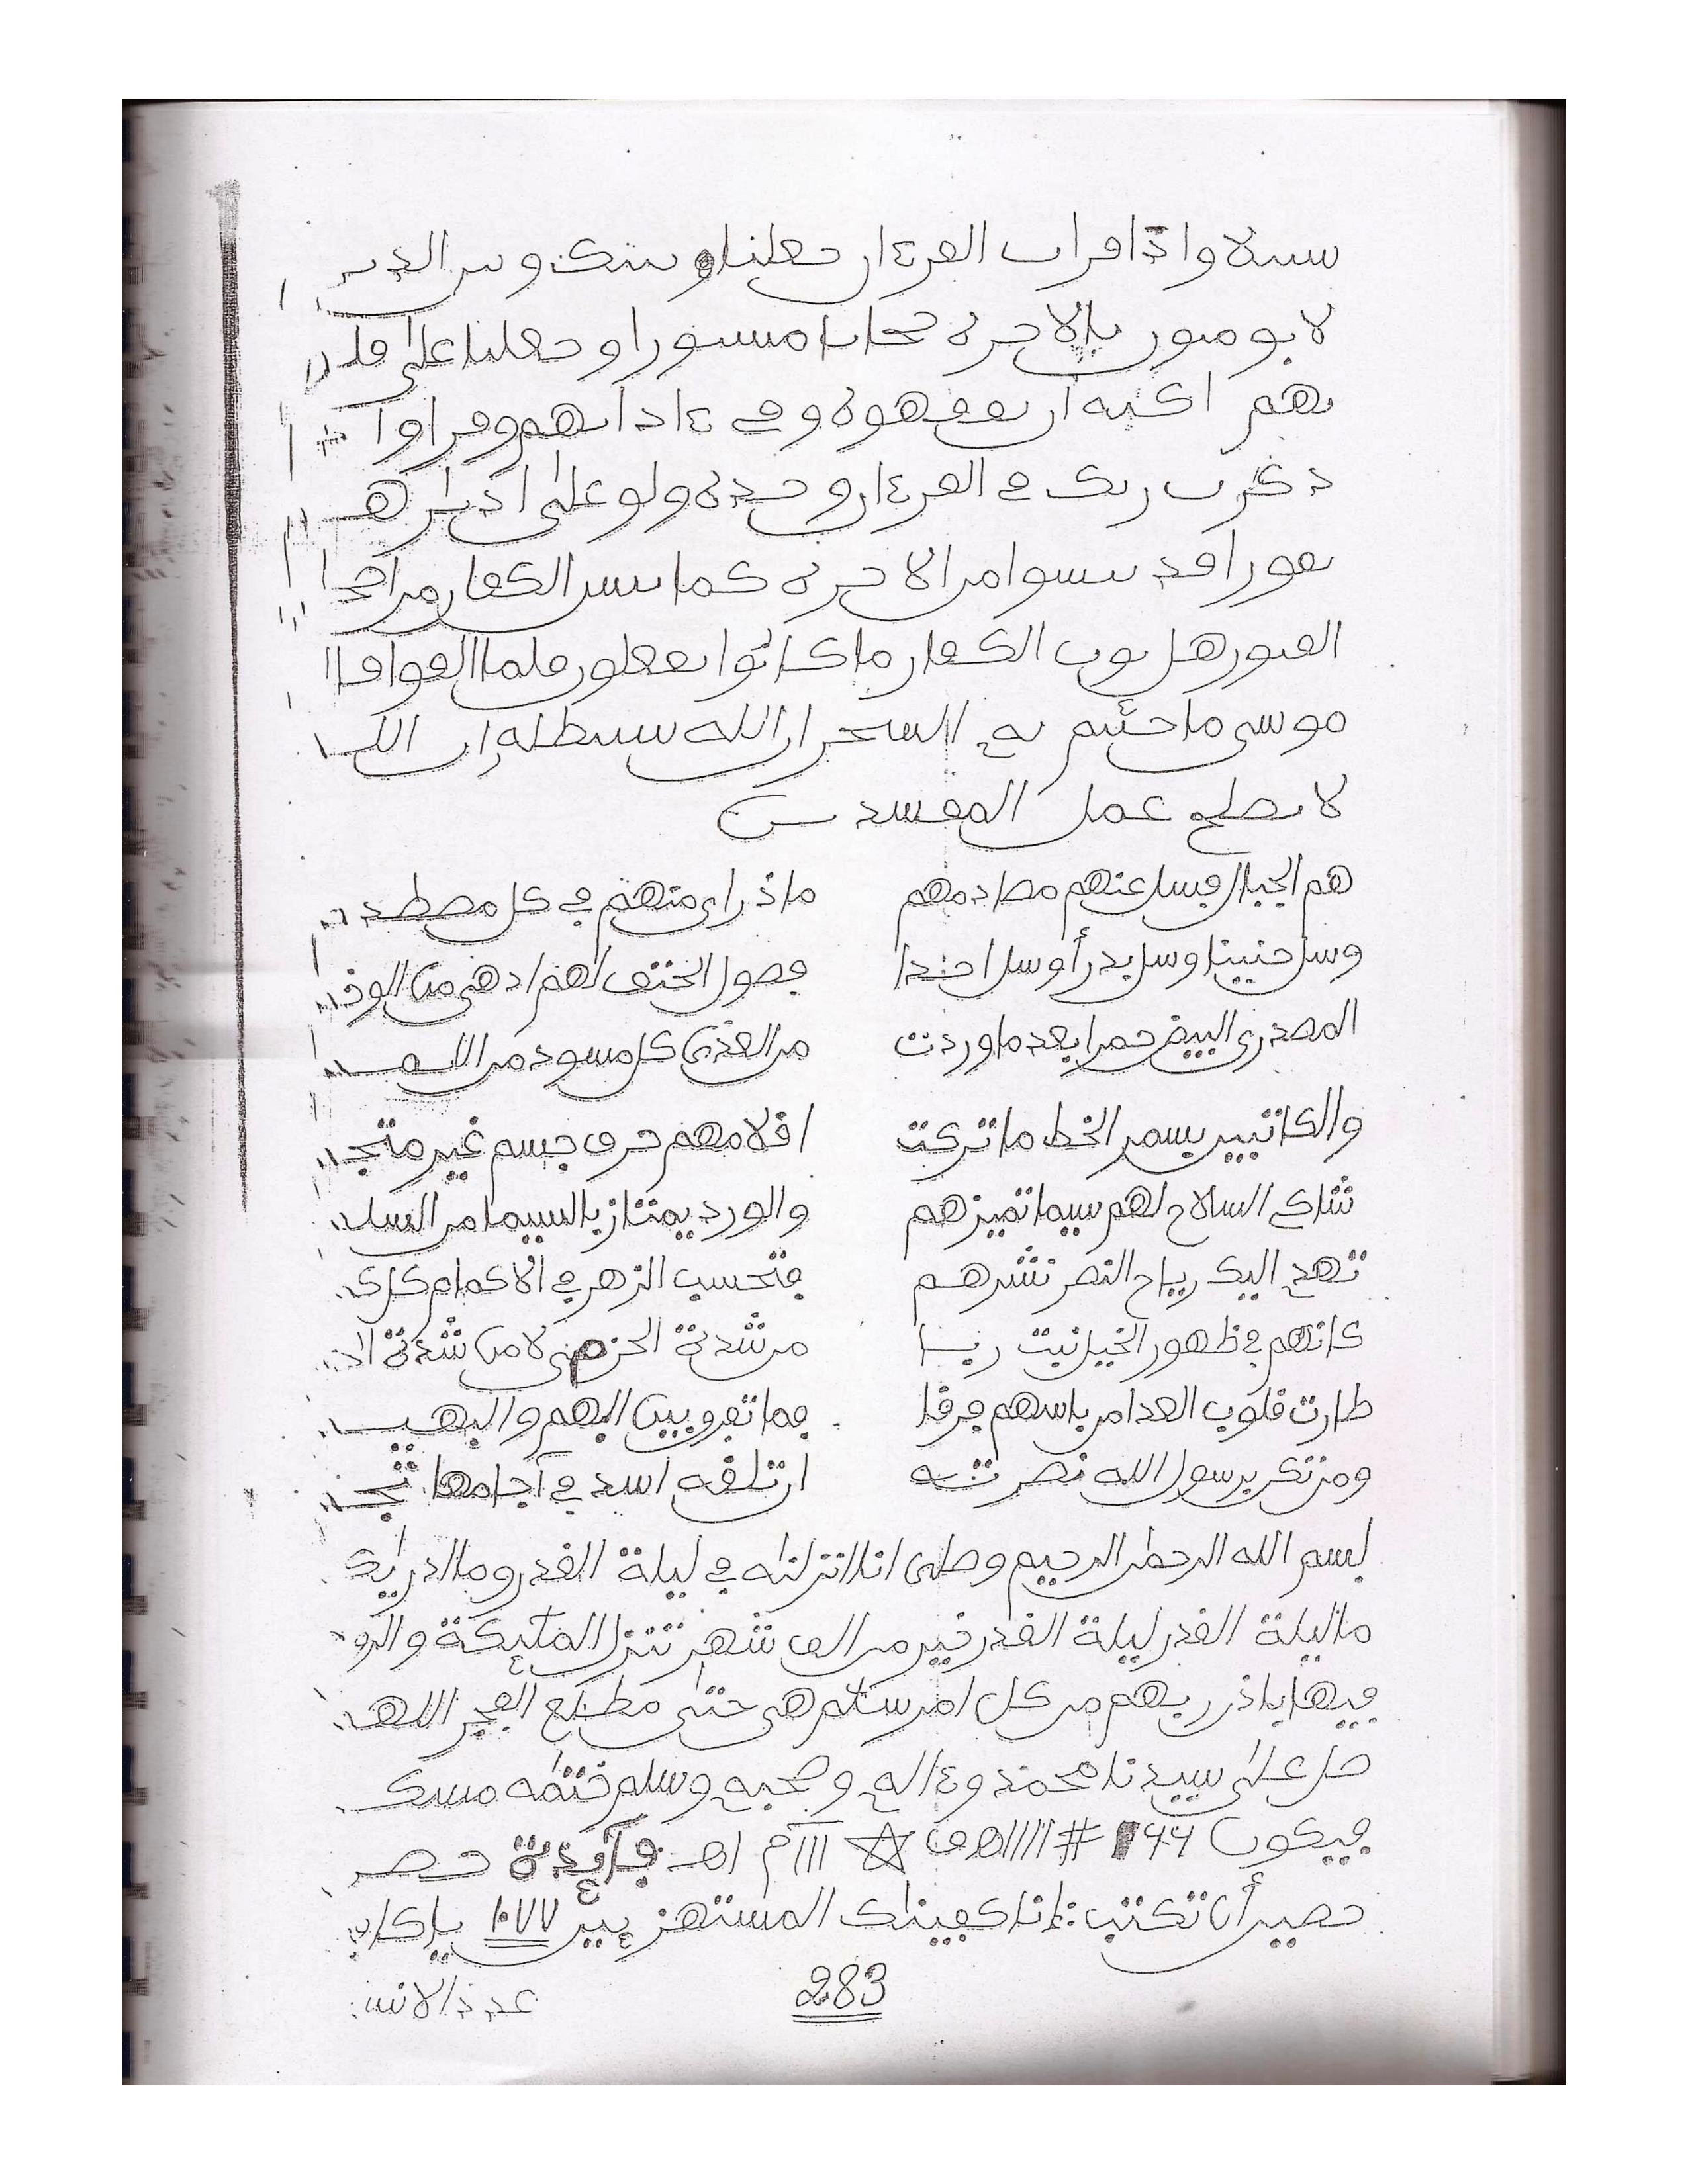 سبيلا واذا قرات القرءان جعلنا بينك وبين الذين
لا يومنون بالاخرة حجابا مستورا وجعلنا على قلو
بهم اكنة ان يفقهوه وفي ءاذانهم وقرا واذا
ذكرت ربك في القرءان وحده ولوا على ادبارهم
نفورا قد يسوا من الاخرة كما يس الكفار من اصحاب
القبور هل ثوب الكفار ما كانوا يفعلون فلما القوا قال
موسى ما جئتم به السحر ان الله سيبطله ان الله
لا يصلح عمل المفسدين
هم الجبال فسل عنهم مصادمهم ماذا راى منهم في كل مصطدم
وسل حنينا وسل بدرا وسل احدا فصول الحتف لهم ادهى من الوخم
المصدرى البيض حمرا بعد ما وردت من العدى كل مسود من اللمم
والكاتبين بسمر الخط ما تركت اقلامهم حرف جسم غير منعجم
شاكي السلاح لهم سيما تميزهم والورد يمتاز بالسيما من السلم
تهد اليك رياح النصر نشرهم فتحسب الزهر في الاكمام كل كمى
كانهم في ظهور الخيل نبت ربا من شدة الحزم لا من شدة الحزم
طارت قلوب العدا من باسهم فرقا فما تفرق بين البهم والبهم
ومن تكن برسول الله نصرته ان تلقه اسد في آجامها تجم
بسم الله الرحمن الرحيم وصلى انا انزلنه في ليلة القدر وما ادريك
ما ليلة القدر ليلة القدر خير من الف شهر تنزل الملئكة والروح
فيها باذن ربهم من كل امر سلم هي حتى مطلع الفجر اللهم
صل على سيدنا محمد وءاله وصحبه وسلم ختمه مسك
فيكون ١٦٦ # //// هو ☆ ااا م اهـ فآئدة حصر
حصير أن تكتب: انا كفيناك المستهزءين ١٠٧٧ يا كافي
283
عدد الاتي: